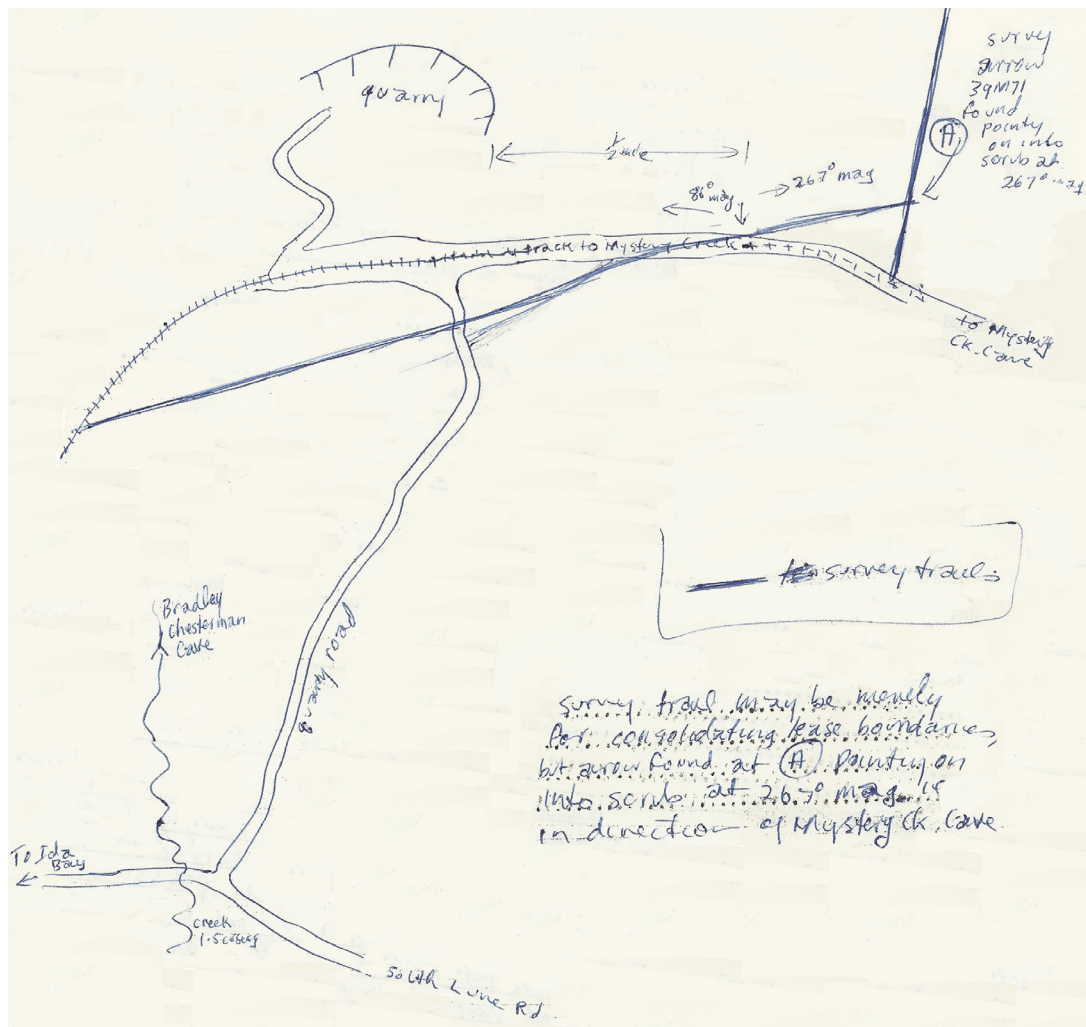 survey
arrow
39M71
found
pointy
on into
scrub at
267° mag
A
quarry
½ mile
86° mag
267° mag
track to Mystery Creek
to Mystery
Ck. Cave
survey trail
Bradley
Chesterman
Cave
Quarry road
survey trail may be merely
for consolidating lease boundaries,
but arrow found at A pointy on
into scrub at 267° mag. is
in direction of Mystery Ck. Cave
To Ida
Bay
creek
South Lune Rd